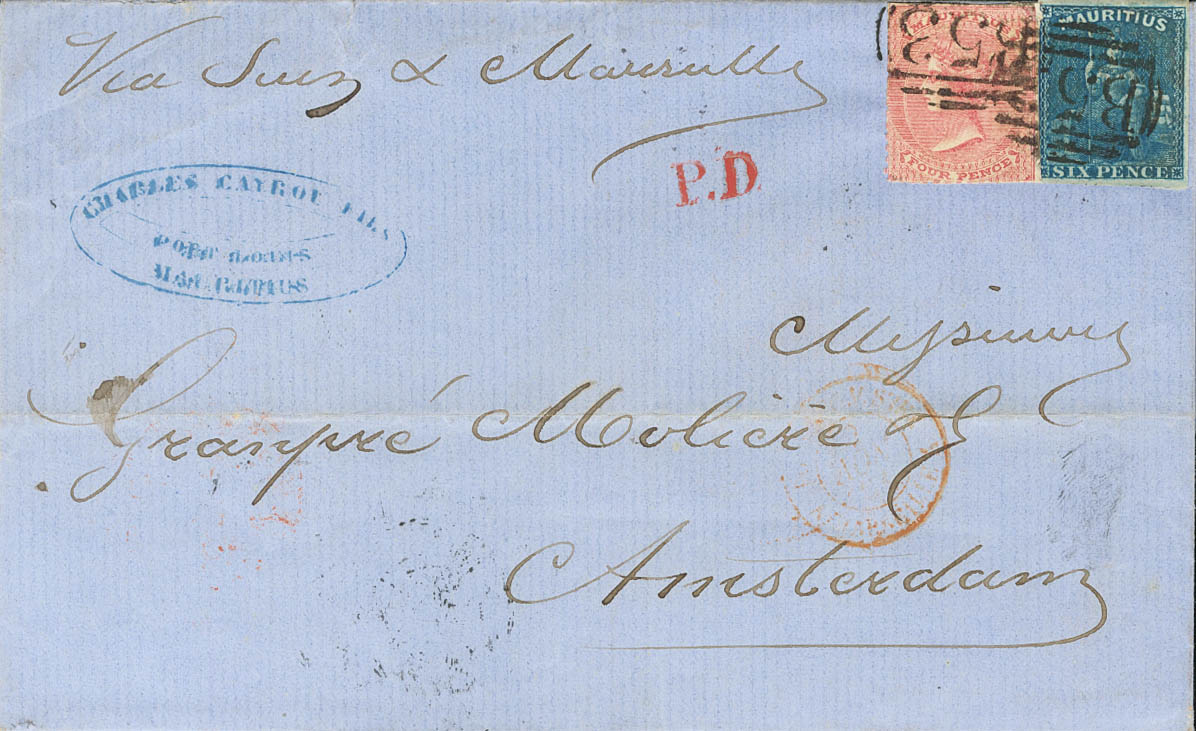 Via Suez & Marseille
MAURITIUS
FOUR PENCE
MAURITIUS
SIX PENCE
B53
B53
P.D.
CHARLES CAYROU FILS
PORT LOUIS
MAURITIUS
Messieurs
Granpré Molière &
Amsterdam